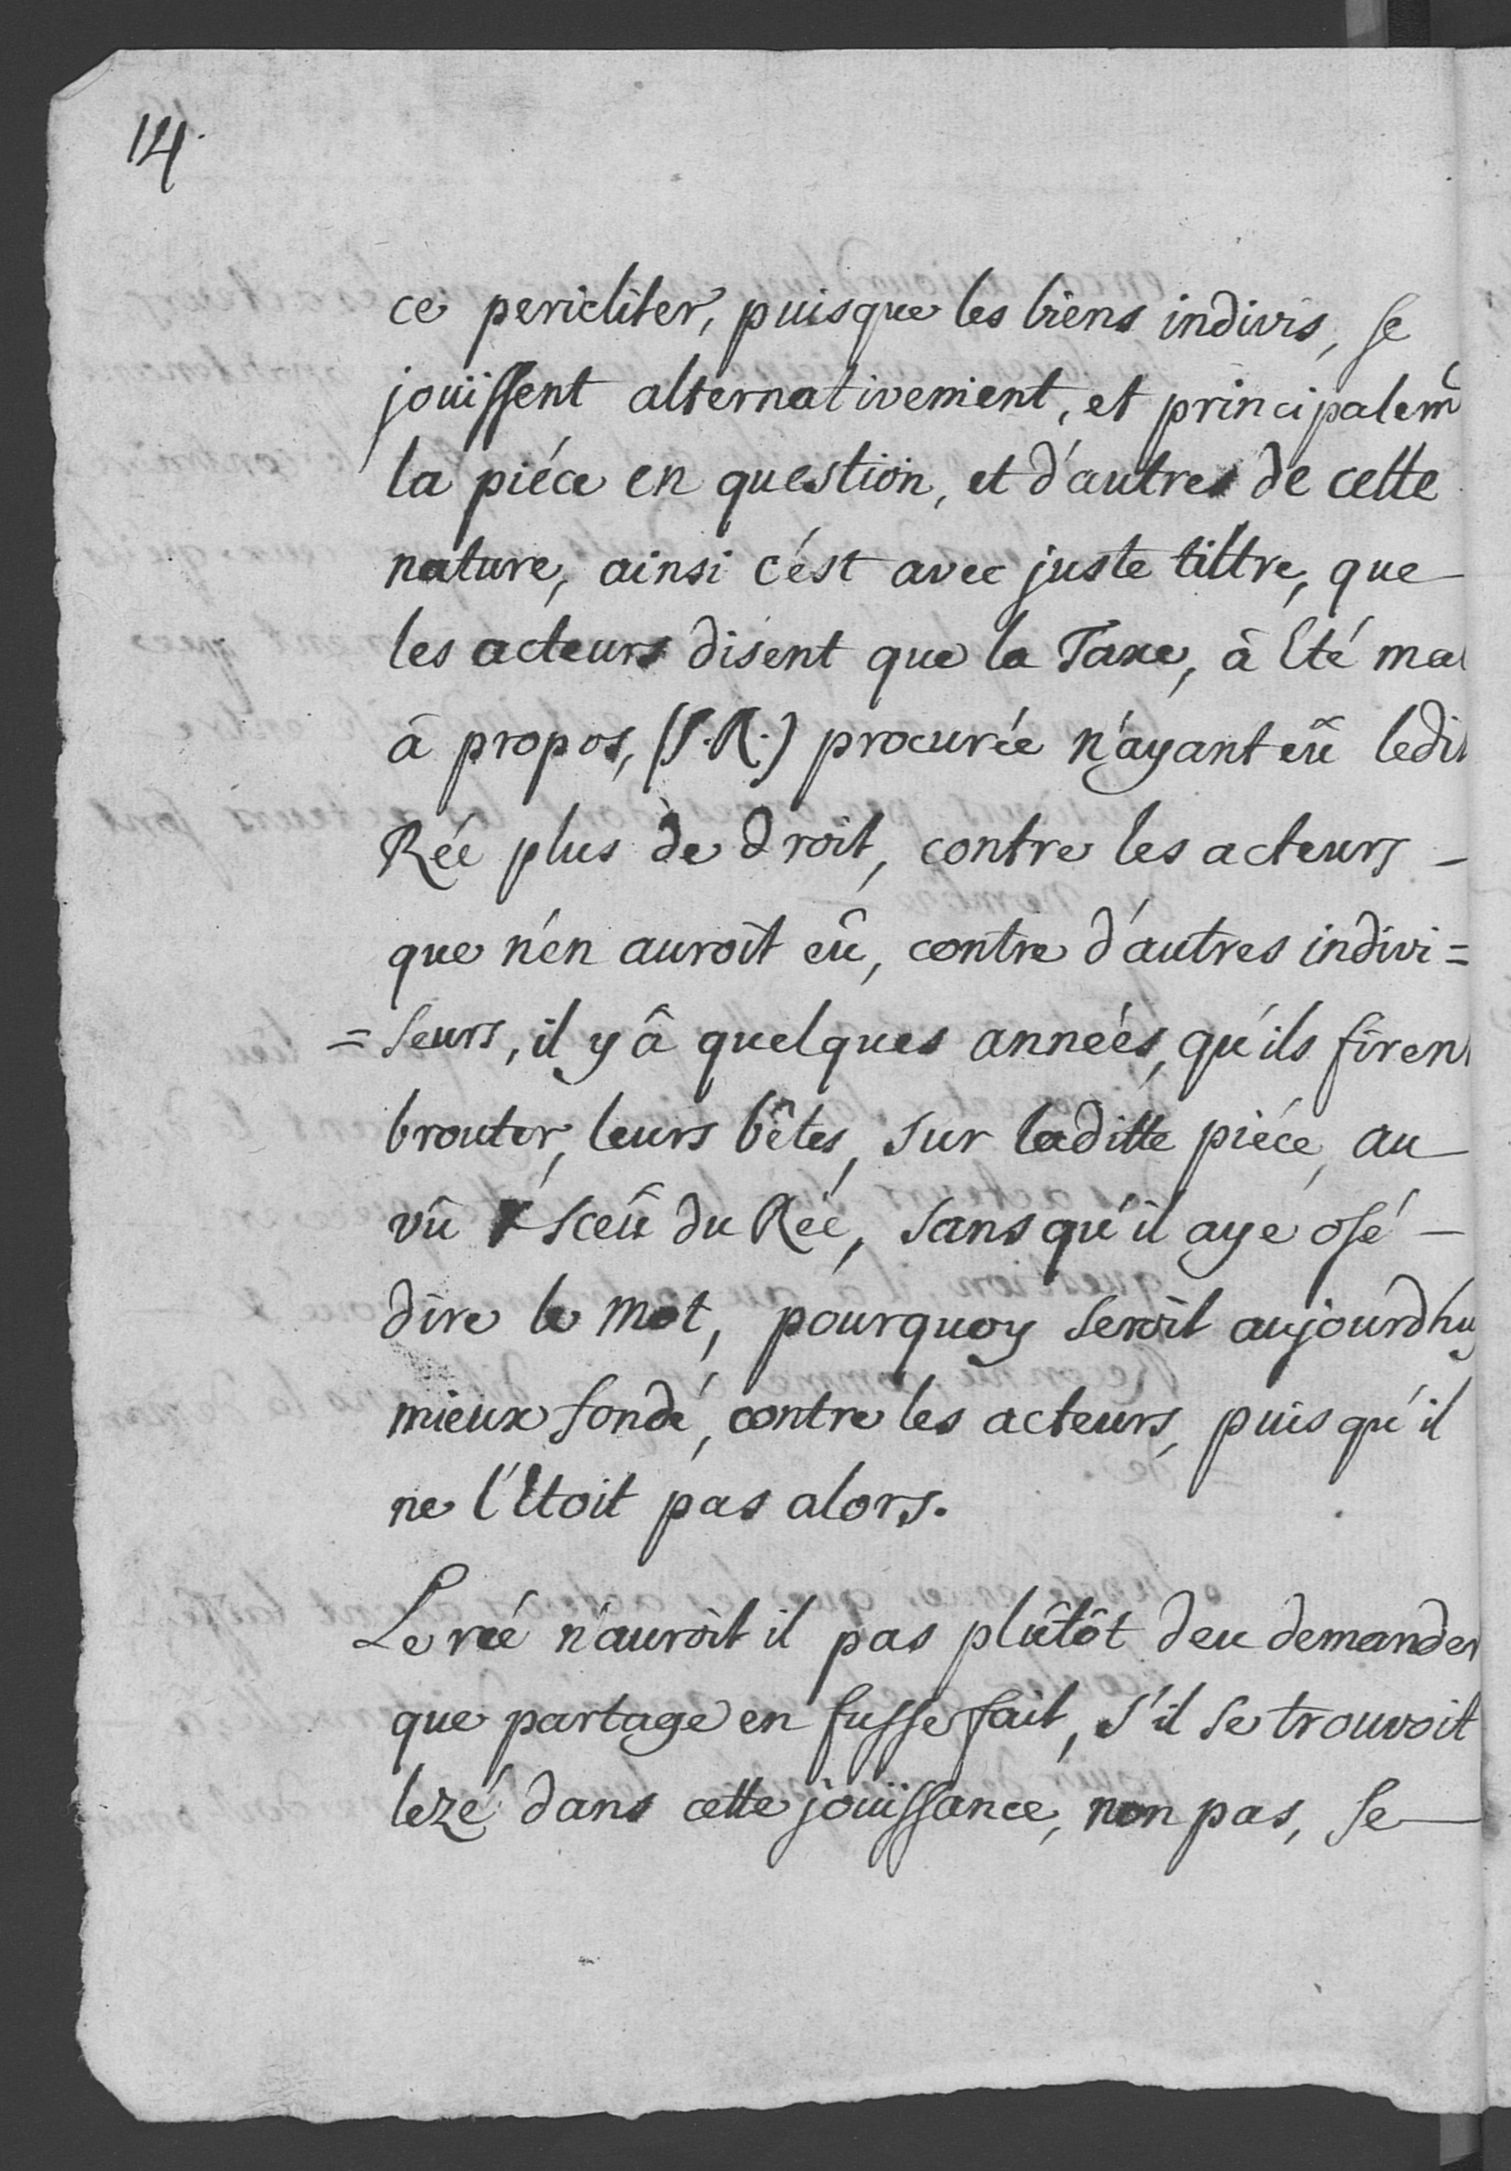 14.
ce pericliter, puisque les biens indivis, se
jouïssent alternativement, et principalem̃
la piéce en question, et d'autres de cette
nature, ainsi c'ést avec juste tiltre, que
les acteurs disent que la Taxe, â Eté mal
â propos, (S.R.) procurée n'ayant eû ledit
Rée plus de droit, contre les acteurs –
que n'en auroit eû, contre d'autres indivi=
=seurs, il y â quelques années, qu'ils firent
brouter, leurs bêtes, sur laditte piéce, au
vû & sceû du Rée, sans qu'il aye osé –
dire le mot, pourquoy seroit aujourdhuy
mieux fondé, contre les acteurs, puis qu'il
ne l'Etoit pas alors.
Le rée n'auroit il pas plûtôt deu demander
que partage en fusse fait, s'il se trouvoit
lezé dans cette jouïssance, non pas, se